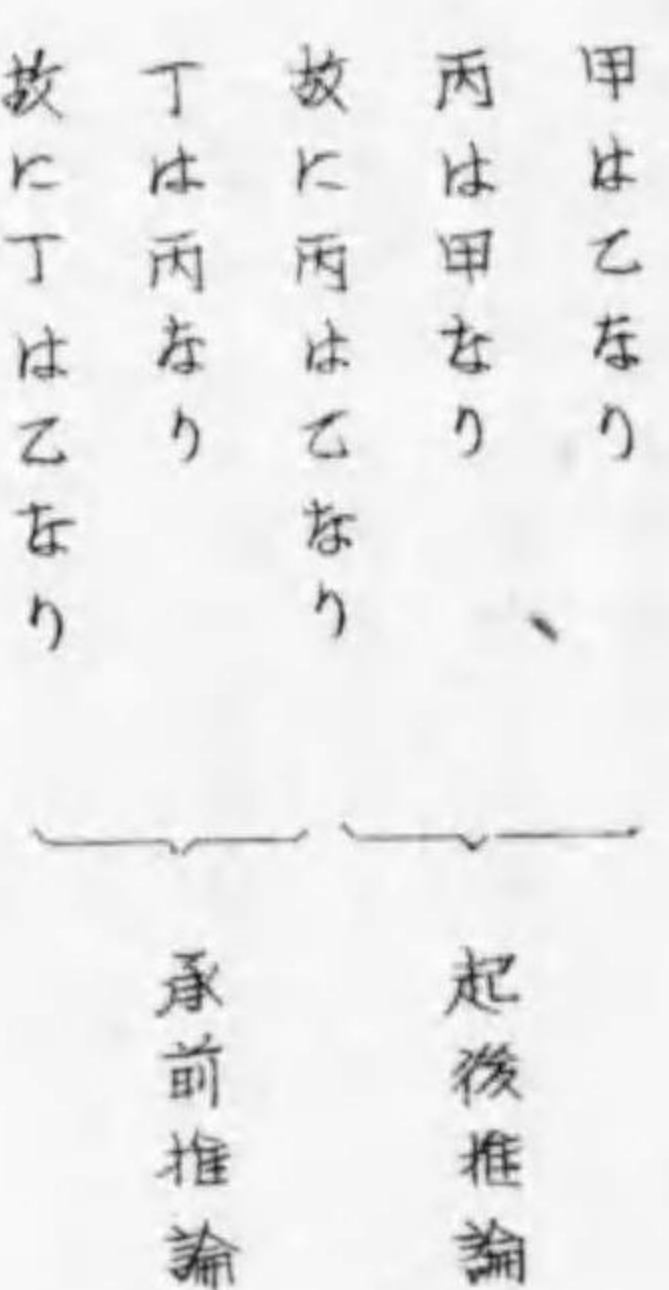 甲は乙なり
丙は甲なり
故に丙は乙なり
丁は丙なり
故に丁は乙なり
起後推論
承前推論